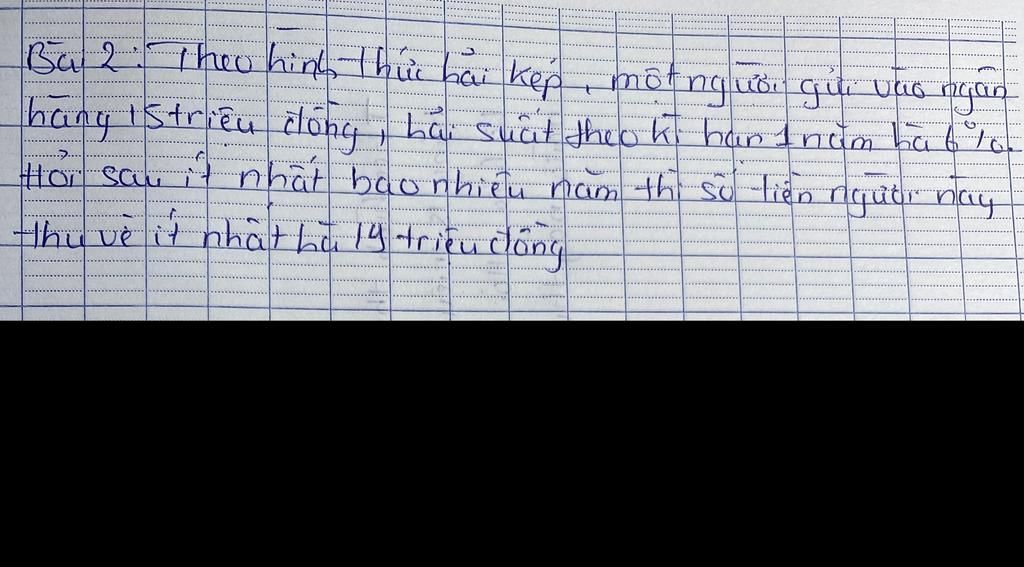 Bài 2: Theo hình thức lãi kép, một người gửi vào ngân
hàng 15 triệu đồng, lãi suất theo kì hạn 1 năm là 6%.
Hỏi sau ít nhất bao nhiêu năm thì số tiền người này
thu về ít nhất là 19 triệu đồng